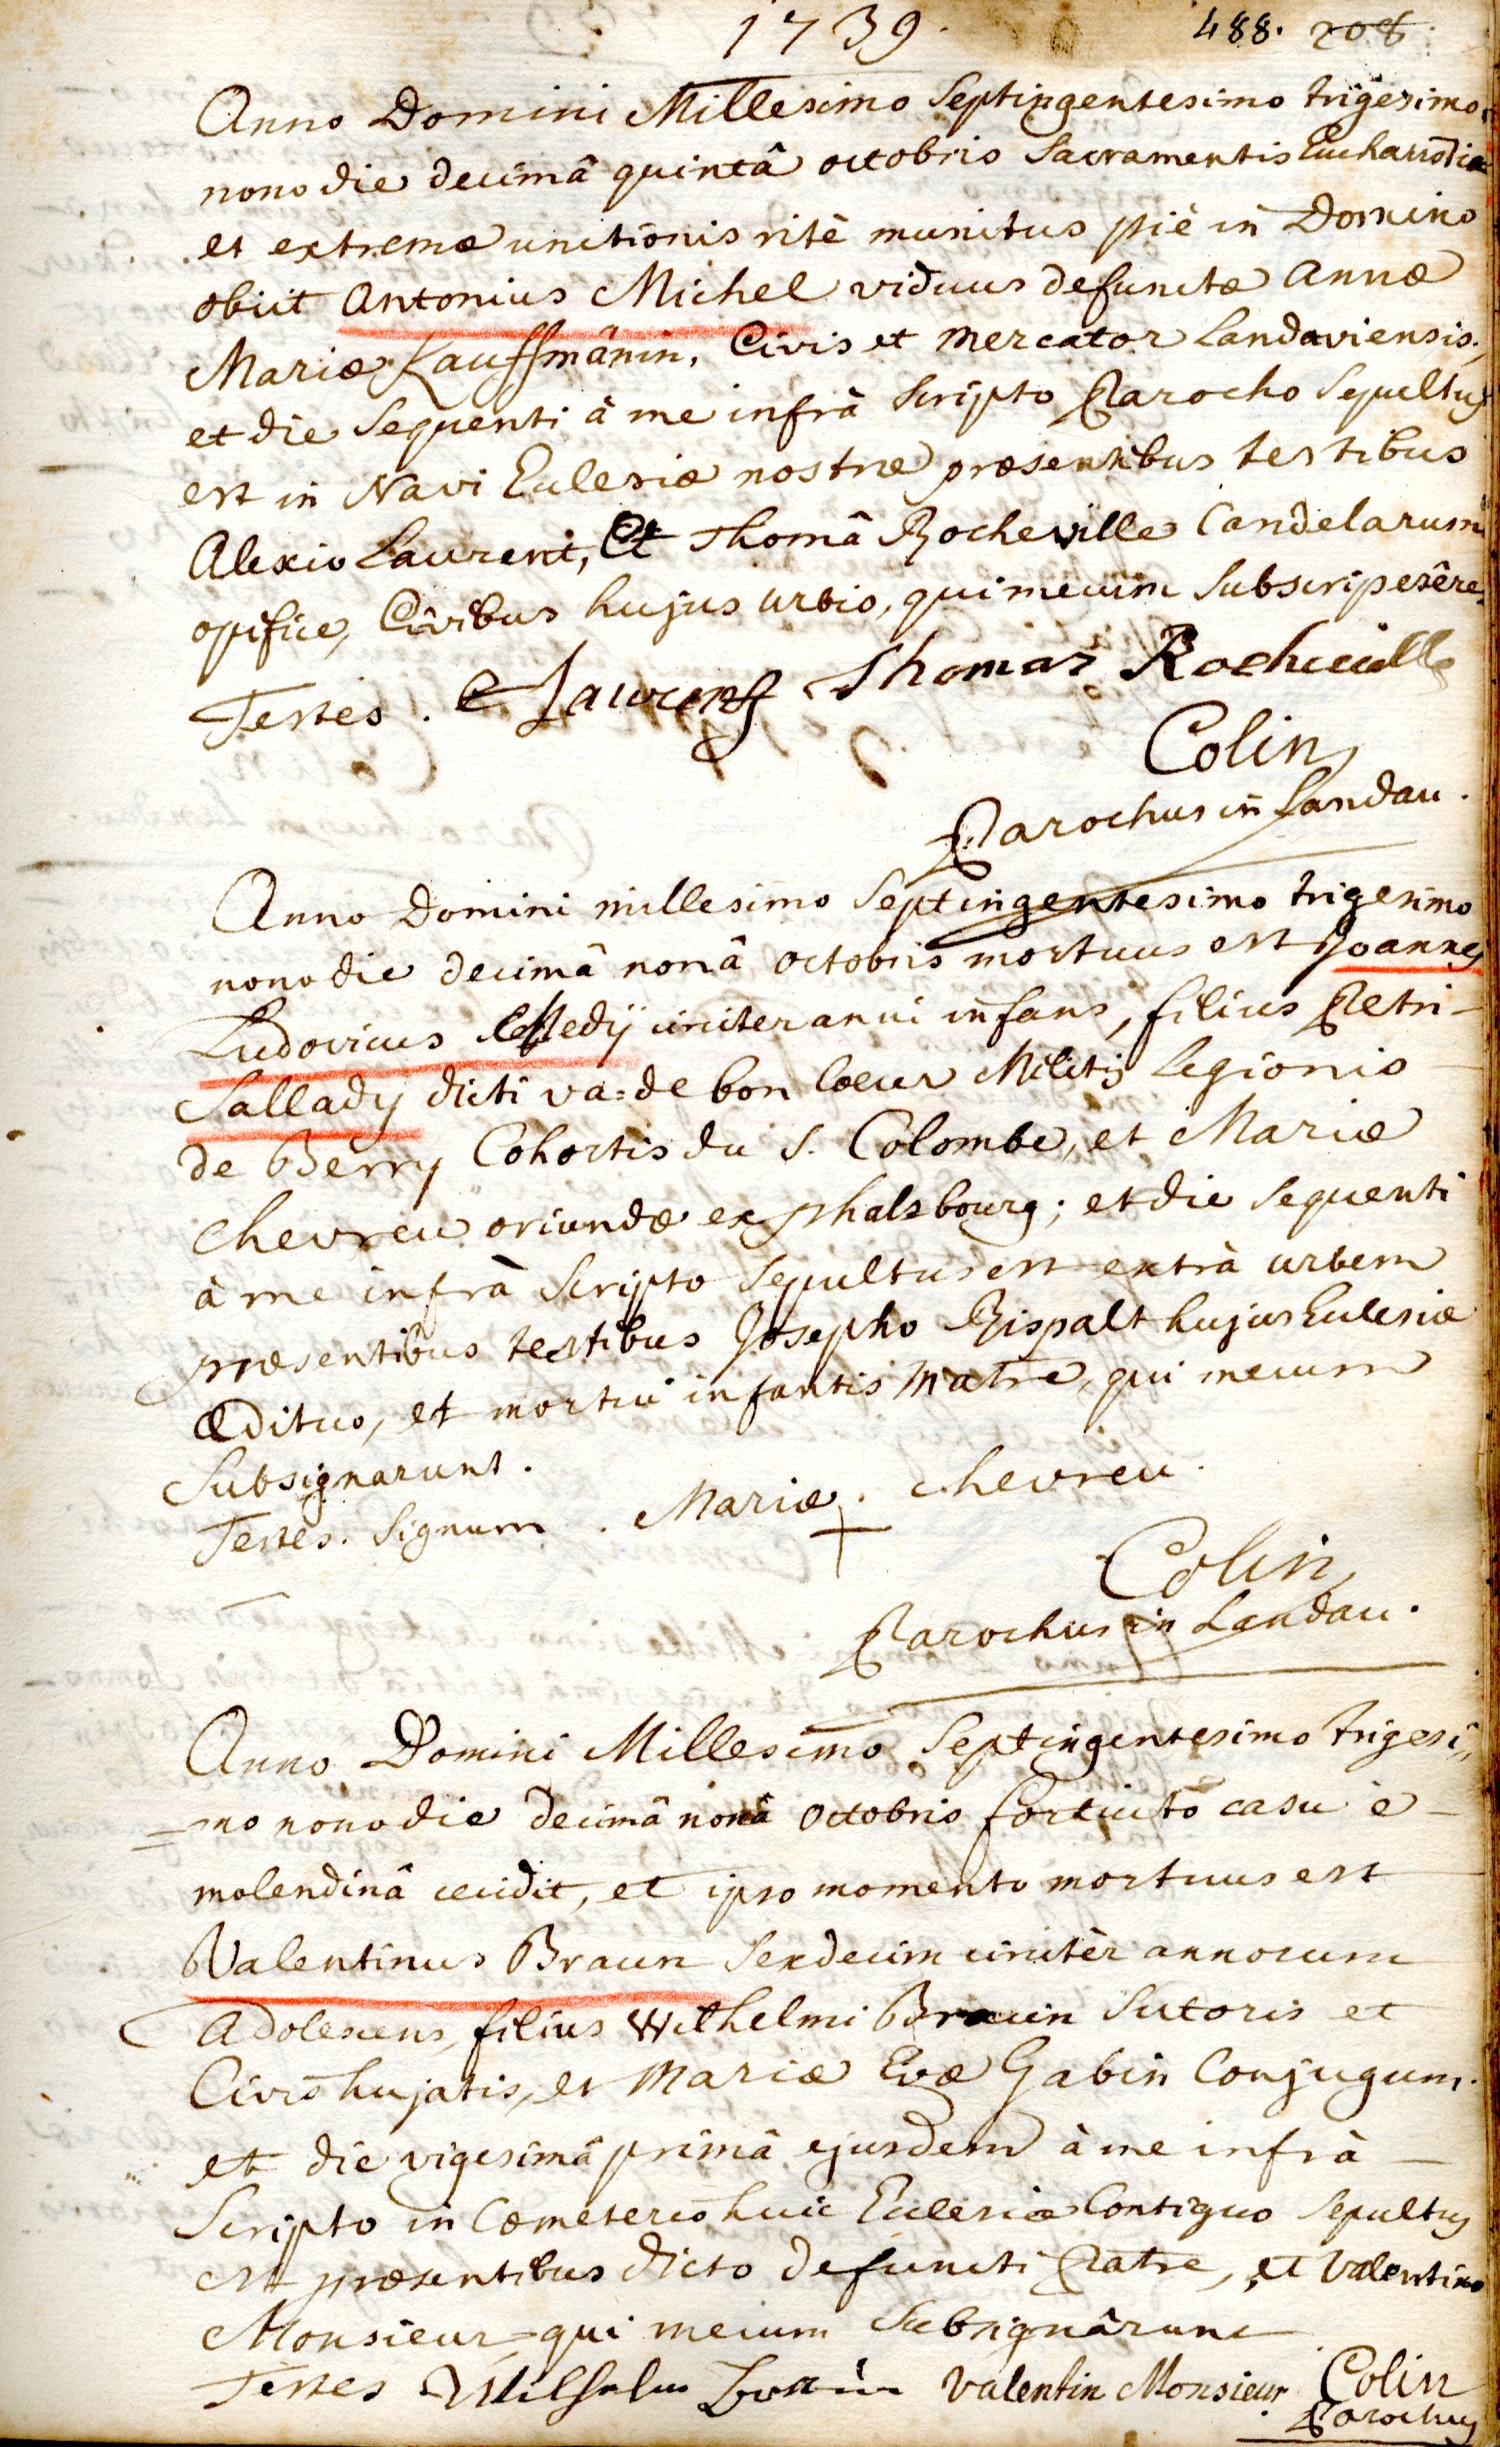 1739.
488. 208.
Anno Domini Millesimo Septingentesimo trigesimo
nono die decimâ quintâ octobris Sacramentis Eucharistiæ
et extremæ unctionis ritè munitus piè in Domino
obiit Antonius Michel viduus defunctæ Annæ
Mariæ Kauffmânin, Civis et Mercator Landaviensis,
et die Sequenti à me infrà Scripto Parocho Sepultus
est in Navi Ecclesiæ nostræ præsentibus testibus
Alexio Laurent, Et Thomâ Rocheville Candelarum
opifice, Civibus hujus urbis, qui mecum Subscripsêre.
Testes. Laurent Thomas Rocheville
Colin
Parochus in Landau.
Anno Domini millesimo Septingentesimo trigesimo
nono die decimâ nonâ octobris mortuus est Joannes
Ludovicus circiter anni infans, filius Petri
Sallady dicti va=de bon Cœur Militis Legionis
de Berry Cohortis du S. Colombe, et Mariæ
Chevreu oriundæ ex phalsbourg; et die Sequenti
à me infrà Scripto Sepultus est extrà urbem
præsentibus testibus Josepho Rispalt hujus Ecclesiæ
Ædituo, et mortui infantis Matre, qui mecum
Subsignarunt.
Testes. Signum. Mariæ + chevreu.
Colin
Parochus in Landau.
Anno Domini Millesimo Septingentesimo trigesi=
=mo nono die decimâ nonâ octobris fortuito casu è
molendinâ cecidit, et ipso momento mortuus est
Valentinus Braun Sexdecim circitèr annorum
Adolescens, filius Wilhelmi Braun Sutoris et
Civis hujatis, et Mariæ Evæ Gabin Conjugum.
et die vigesimâ primâ ejusdem à me infrà
Scripto in Cœmeterio huic Ecclesiæ Contiguo Sepultus
est præsentibus dicto defuncti Patre, et Valentino
Monsieur qui mecum Subsignârunt
Testes Wilhelm Braun Valentin Monsieur Colin
Parochus